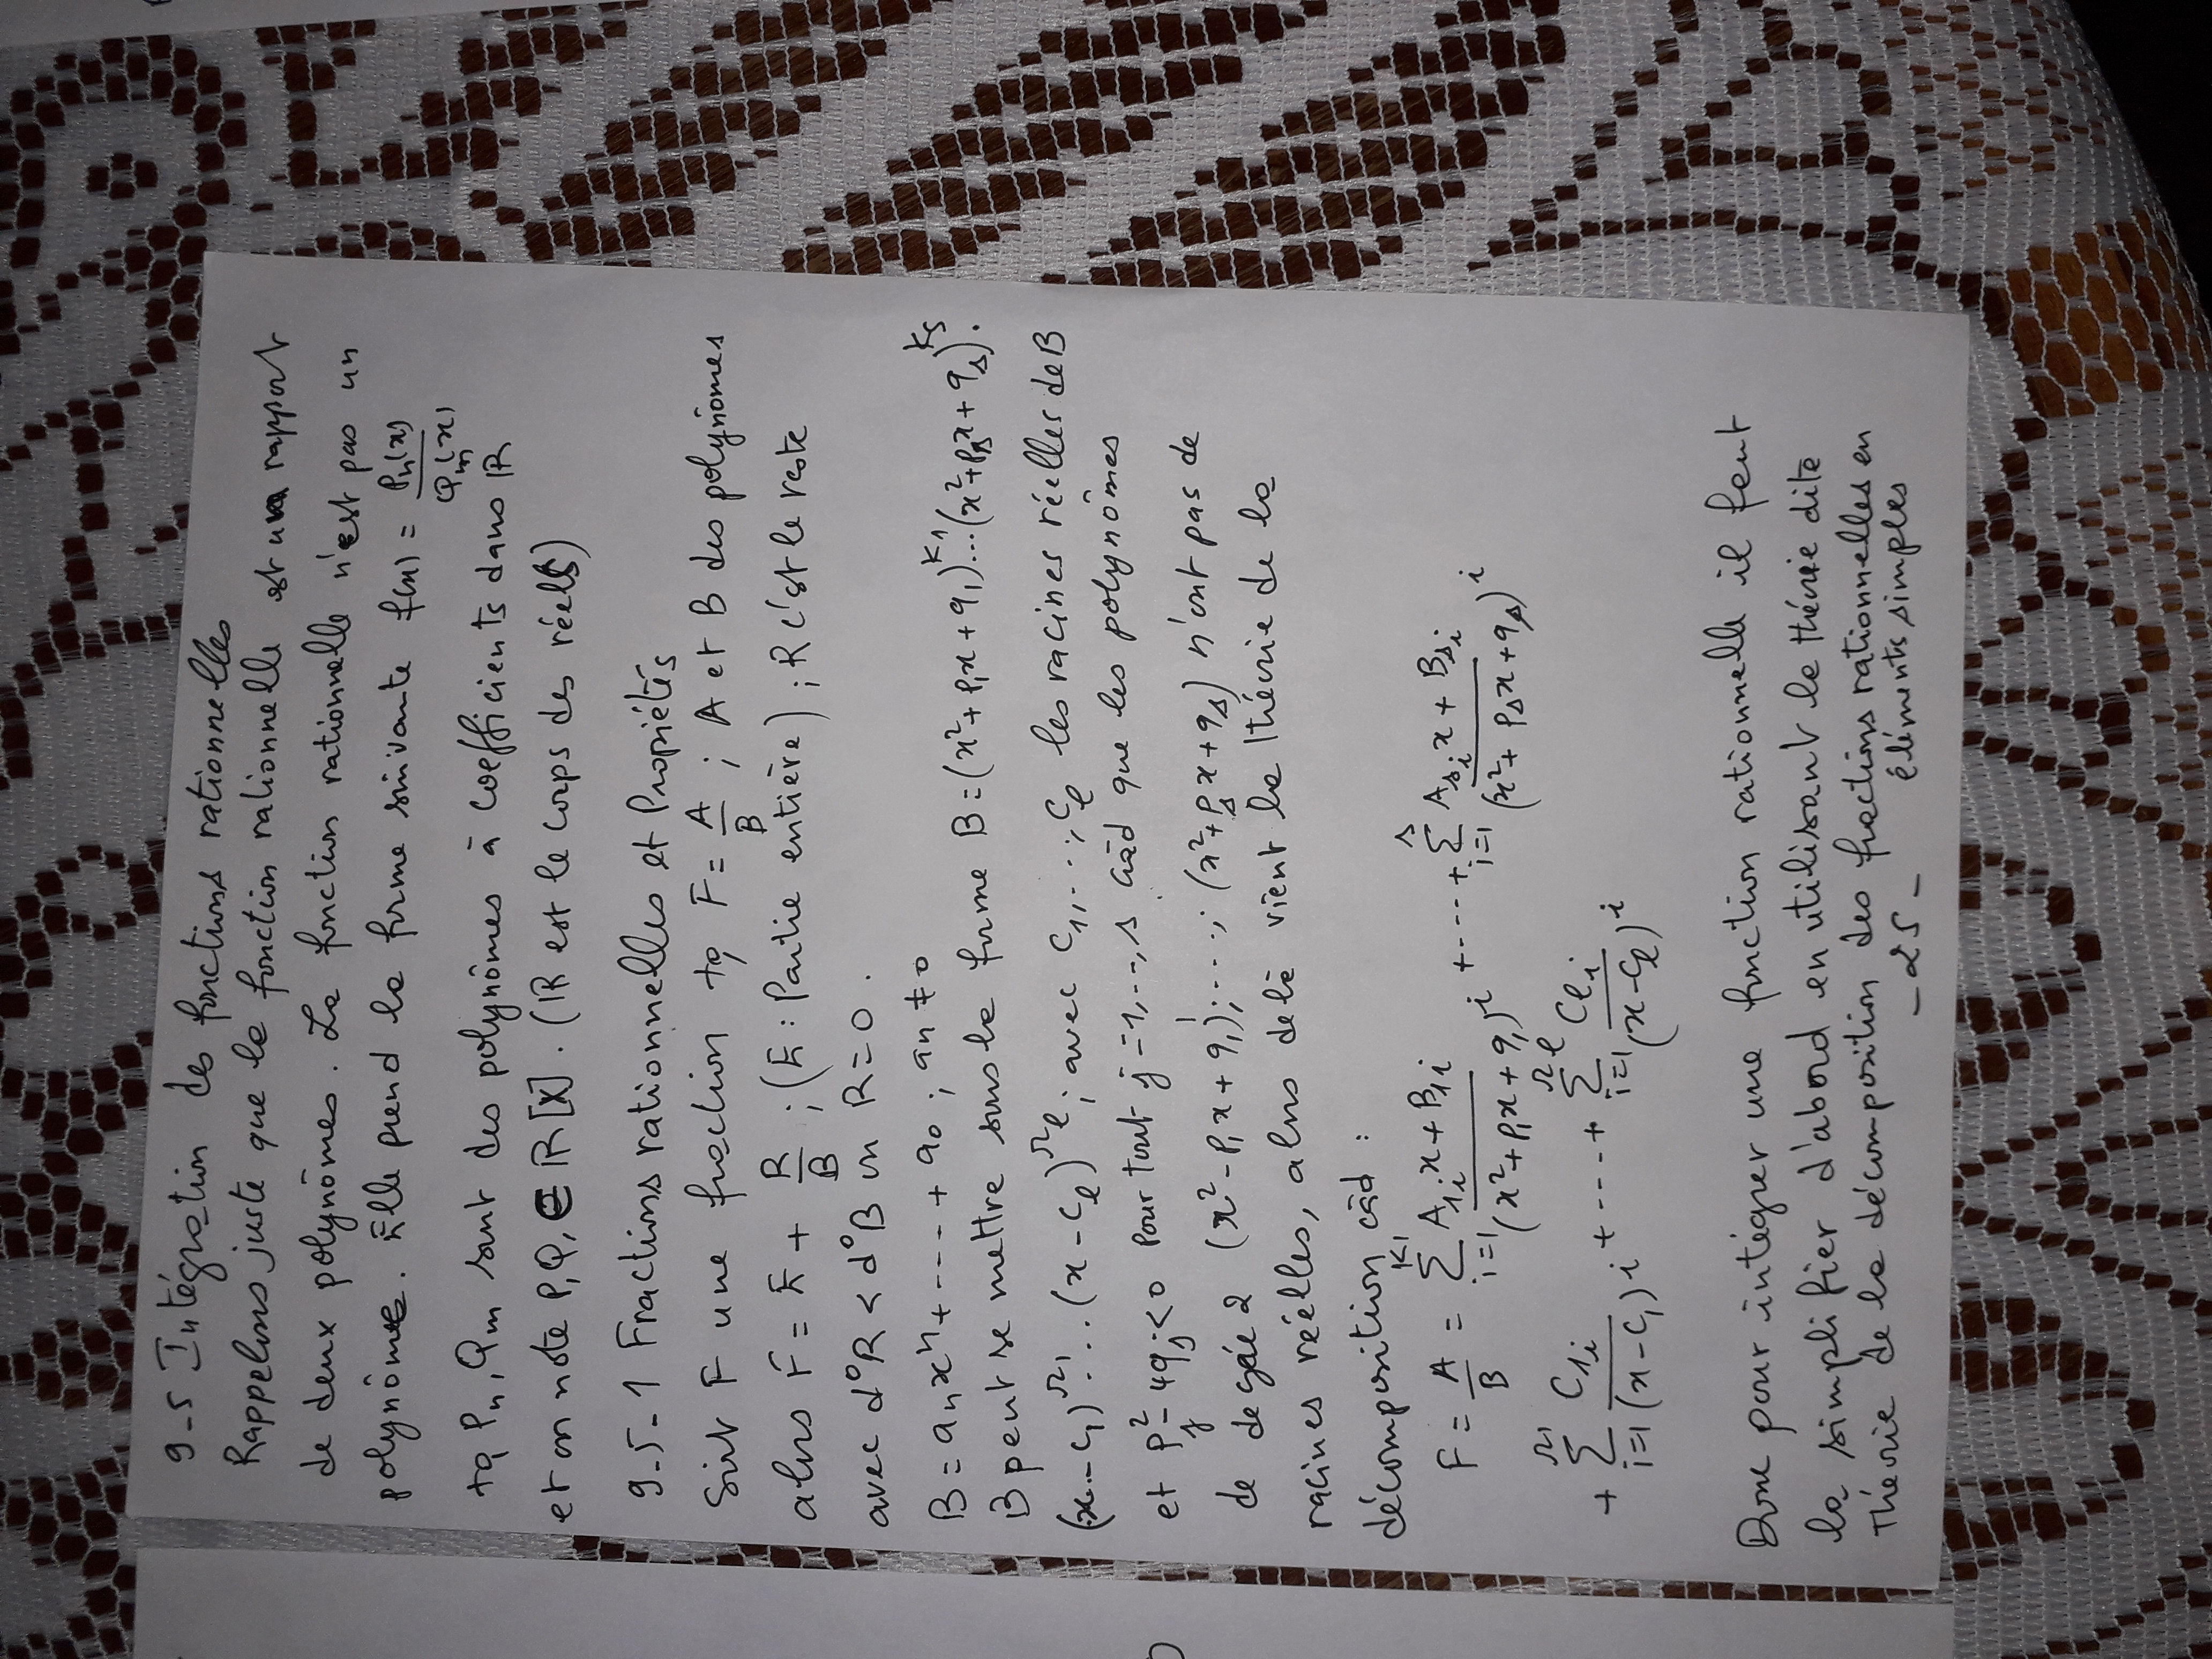 9-5 Intégration des fonctions rationnelles
Rappelons juste que la fonction rationnelle est un rapport
de deux polynômes. La fonction rationnelle n'est pas un
polynôme. Elle prend la forme suivante f(x) = Pn(x)/Qm(x)
tq Pn, Qm sont des polynômes à coefficients dans ℝ
et on note P, Q, ∈ ℝ[X]. (ℝ est le corps des réels)
9-5-1 Fractions rationnelles et Propriétés
Soit F une fraction tq F = A/B ; A et B des polynômes
alors F = E + R/B ; (E : Partie entière) ; R c'est le reste
avec d°R < d°B ou R = 0.
B = aₙxⁿ + ---- + a₀ ; aₙ ≠ 0
B peut se mettre sous la forme B = (x² + p₁x + q₁)^k₁...(x² + pₛx + qₛ)^kₛ.
(x - c₁)^r₁...(x - cₗ)^rₗ ; avec c₁, ..., cₗ les racines réelles de B
et pⱼ² - 4qⱼ < 0 Pour tout j = 1, ..., s càd que les polynômes
de degré 2 (x² - p₁x + q₁) ; ... ; (x² + pₛx + qₛ) n'ont pas de
racines réelles, alors delà vient la théorie de la
décomposition càd :
F = A/B = ∑_{i=1}^{k₁} (A₁ᵢx + B₁ᵢ)/(x² + p₁x + q₁)^i + ---- + ∑_{i=1}^{s} (Aₛᵢx + Bₛᵢ)/(x² + pₛx + qₛ)^i
+ ∑_{i=1}^{r₁} C₁ᵢ/(x - c₁)^i + ---- + ∑_{i=1}^{rₗ} Cₗᵢ/(x - cₗ)^i
Donc pour intégrer une fonction rationnelle il faut
la simplifier d'abord en utilisant la théorie dite
Théorie de la décomposition des fractions rationnelles en
éléments simples
- 25 -